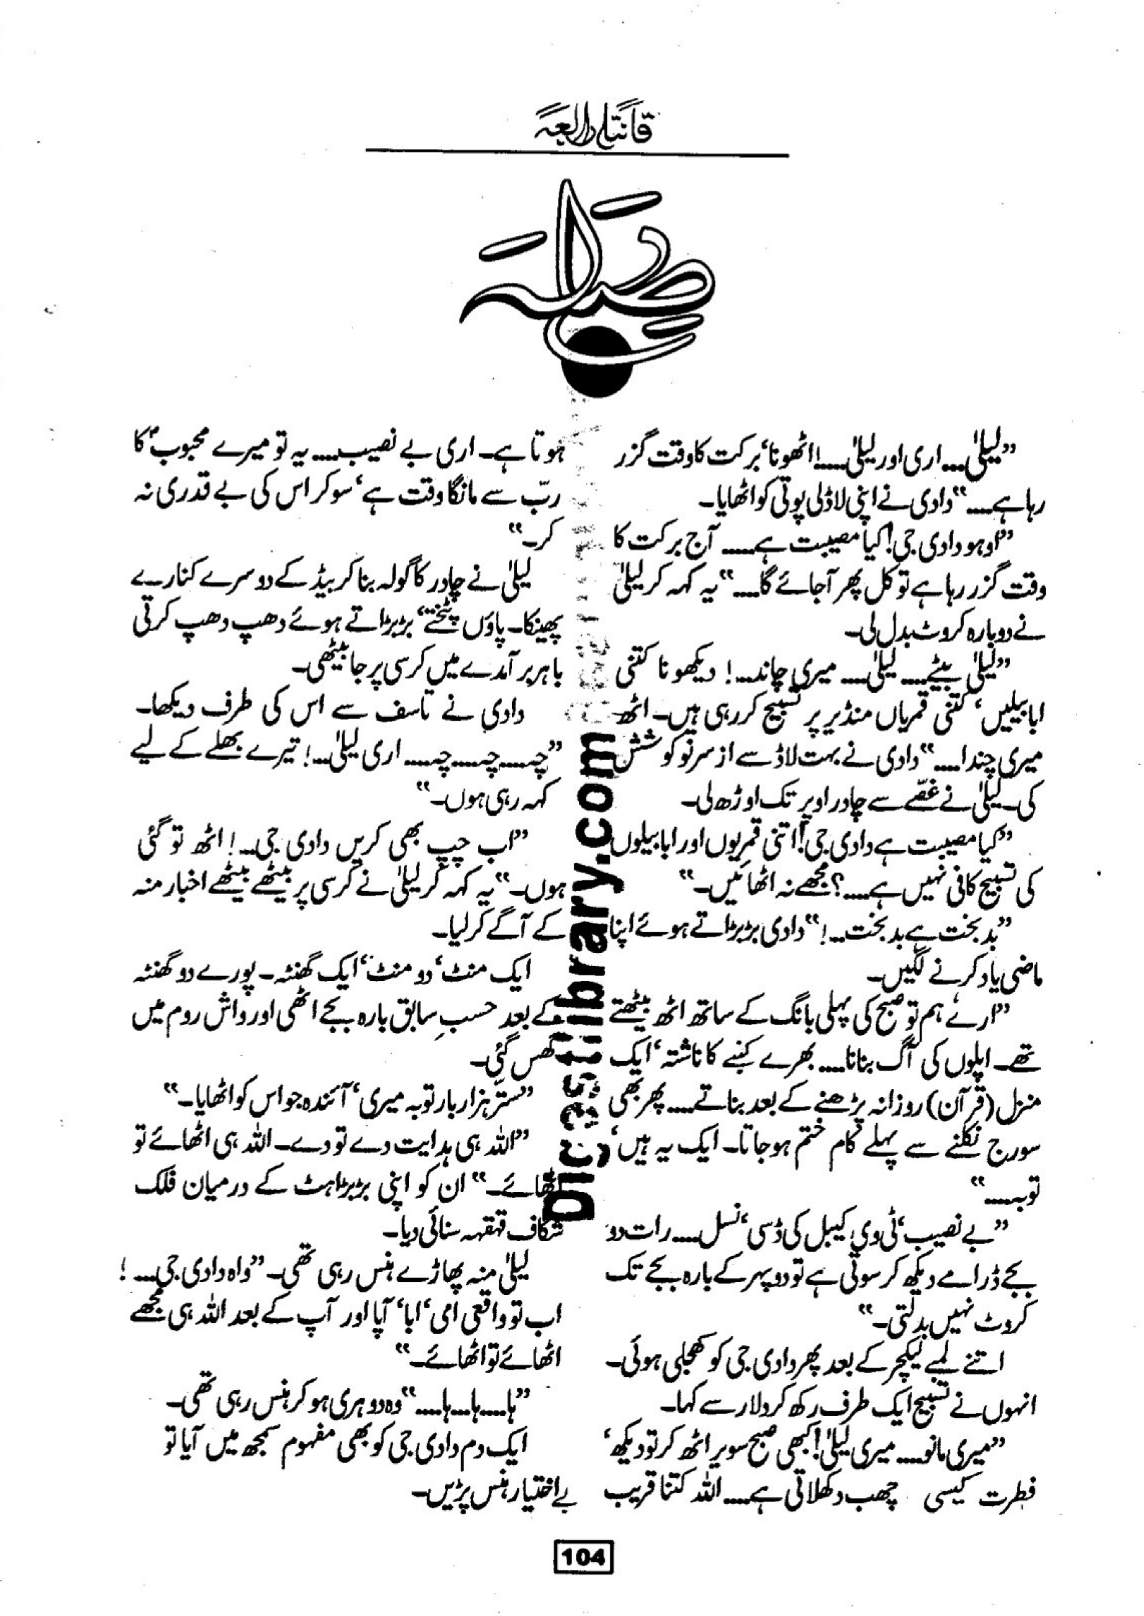 قانتہ رابعہ
صلہ
”لیلیٰ.... اری اور لیلیٰ....! اٹھو نا‘ برکت کا وقت گزر
رہا ہے....“ دادی نے اپنی لاڈلی پوتی کو اٹھایا۔
”اوہو دادی جی! کیا مصیبت ہے.... آج برکت کا
وقت گزر رہا ہے تو کل پھر آجائے گا....“ یہ کہہ کر لیلیٰ
نے دوبارہ کروٹ بدل لی۔
”لیلیٰ بیٹے.... لیلیٰ.... میری چاند....! دیکھو نا کتنی
ابابیلیں‘ کتنی قمریاں منڈیر پر تسبیح کر رہی ہیں۔ اٹھ
میری چندا....“ دادی نے بہت لاڈ سے از سر نو کوشش
کی۔ لیلیٰ نے غصّے سے چادر اوپر تک اوڑھ لی۔
”کیا مصیبت ہے دادی جی! اتنی قمریوں اور ابابیلوں
کی تسبیح کافی نہیں ہے....؟ مجھے نہ اٹھائیں۔“
”بد بخت ہے بد بخت...!“ دادی بڑبڑاتے ہوئے اپنا
ماضی یاد کرنے لگیں۔
”ارے ہم تو صبح کی پہلی بانگ کے ساتھ اٹھ بیٹھتے
تھے۔ اپلوں کی آگ بنانا.... بھرے کنبے کا ناشتہ‘ ایک
منزل (قرآن) روزانہ پڑھنے کے بعد بناتے.... پھر بھی
سورج نکلنے سے پہلے کام ختم ہو جاتا۔ ایک یہ ہیں‘
توبہ....“
”بے نصیب‘ ٹی وی کیبل کی ڈسی‘ نسل.... رات دو
بجے ڈرامے دیکھ کر سوتی ہے تو دوپہر کے بارہ بجے تک
کروٹ نہیں بدلتی۔“
اتنے لمبے لیکچر کے بعد پھر دادی جی کو کھجلی ہوئی۔
انہوں نے تسبیح ایک طرف رکھ کر دلار سے کہا۔
”میری مانو.... میری لیلیٰ! کبھی صبح سویر اٹھ کر تو دیکھ‘
فطرت کیسی چھب دکھلاتی ہے.... اللہ کتنا قریب
ہوتا ہے۔ اری بے نصیب.... یہ تو میرے محبوبؐ کا
ربّ سے مانگا وقت ہے‘ سو کر اس کی بے قدری نہ
کر۔“
لیلیٰ نے چادر کا گولہ بنا کر بیڈ کے دوسرے کنارے
پھینکا۔ پاؤں پٹختے‘ بڑبڑاتے ہوئے دھپ دھپ کرتی
باہر برآمدے میں کرسی پر جا بیٹھی۔
دادی نے تاسف سے اس کی طرف دیکھا۔
”چہ.... چہ.... چہ.... اری لیلیٰ...! تیرے بھلے کے لیے
کہہ رہی ہوں۔“
”اب چپ بھی کریں دادی جی...! اٹھ تو گئی
ہوں۔“ یہ کہہ کر لیلیٰ نے کرسی پر بیٹھے بیٹھے اخبار منہ
کے آگے کر لیا۔
ایک منٹ‘ دو منٹ‘ ایک گھنٹہ۔ پورے دو گھنٹہ
کے بعد حسبِ سابق بارہ بجے اٹھی اور واش روم میں
گھس گئی۔
”ستّر ہزار بار توبہ میری‘ آئندہ جو اس کو اٹھایا۔“
”اللہ ہی ہدایت دے تو دے۔ اللہ ہی اٹھائے تو
اٹھائے۔“ ان کو اپنی بڑبڑاہٹ کے درمیان فلک
شگاف قہقہہ سنائی دیا۔
لیلیٰ منہ پھاڑے ہنس رہی تھی۔ ”واہ دادی جی....!
اب تو واقعی امی‘ ابا‘ آپا اور آپ کے بعد اللہ ہی مجھے
اٹھائے تو اٹھائے۔“
”ہا.... ہا.... ہا....“ وہ دوہری ہو کر ہنس رہی تھی۔
ایک دم دادی جی کو بھی مفہوم سمجھ میں آیا تو
بے اختیار ہنس پڑیں۔
Digestlibrary.com
104